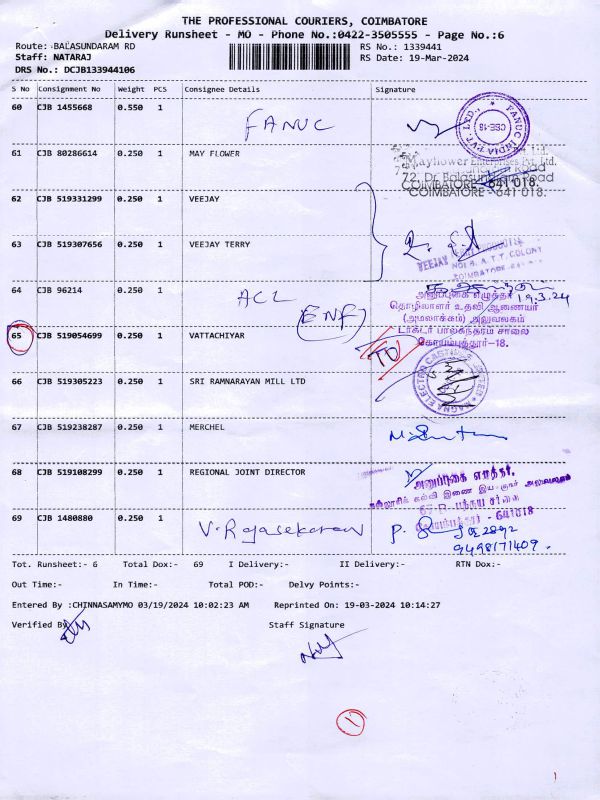 THE PROFESSIONAL COURIERS, COIMBATORE
Delivery Runsheet - MO - Phone No.:0422-3505555 - Page No.:6
Route: BALASUNDARAM RD RS No.: 1339441
Staff: NATARAJ RS Date: 19-Mar-2024
DRS No.: DCJB133944106
S No Consignment No Weight PCS Consignee Details Signature
60 CJB 1455668 0.550 1 FANUC
FANUC INDIA PVT. LTD., CBE-18
61 CJB 80286614 0.250 1 MAY FLOWER
Mayflower Enterprises Pvt. Ltd.
72, Dr. Balasundaram Road
COIMBATORE - 641 018.
62 CJB 519331299 0.250 1 VEEJAY
63 CJB 519307656 0.250 1 VEEJAY TERRY
VEEJAY
A.T.T. COLONY
COIMBATORE
64 CJB 96214 0.250 1 ACL (ENF)
19.3.24
தொழிலாளர் உதவி ஆணையர்
(அமலாக்கம்) அலுவலகம்
டாக்டர் பாலசுந்தரம் சாலை
கோயம்புத்தூர்-18.
65 CJB 519054699 0.250 1 VATTACHIYAR
TO
66 CJB 519305223 0.250 1 SRI RAMNARAYAN MILL LTD
MAGNA ELECTRO CASTINGS LIMITED
67 CJB 519238287 0.250 1 MERCHEL
68 CJB 519108299 0.250 1 REGIONAL JOINT DIRECTOR
641018
69 CJB 1480880 0.250 1 V. Rajasekaran
9498171409.
Tot. Runsheet:- 6 Total Dox:- 69 I Delivery:- II Delivery:- RTN Dox:-
Out Time:- In Time:- Total POD:- Delvy Points:-
Entered By :CHINNASAMYMO 03/19/2024 10:02:23 AM Reprinted On: 19-03-2024 10:14:27
Verified By Staff Signature
1
1